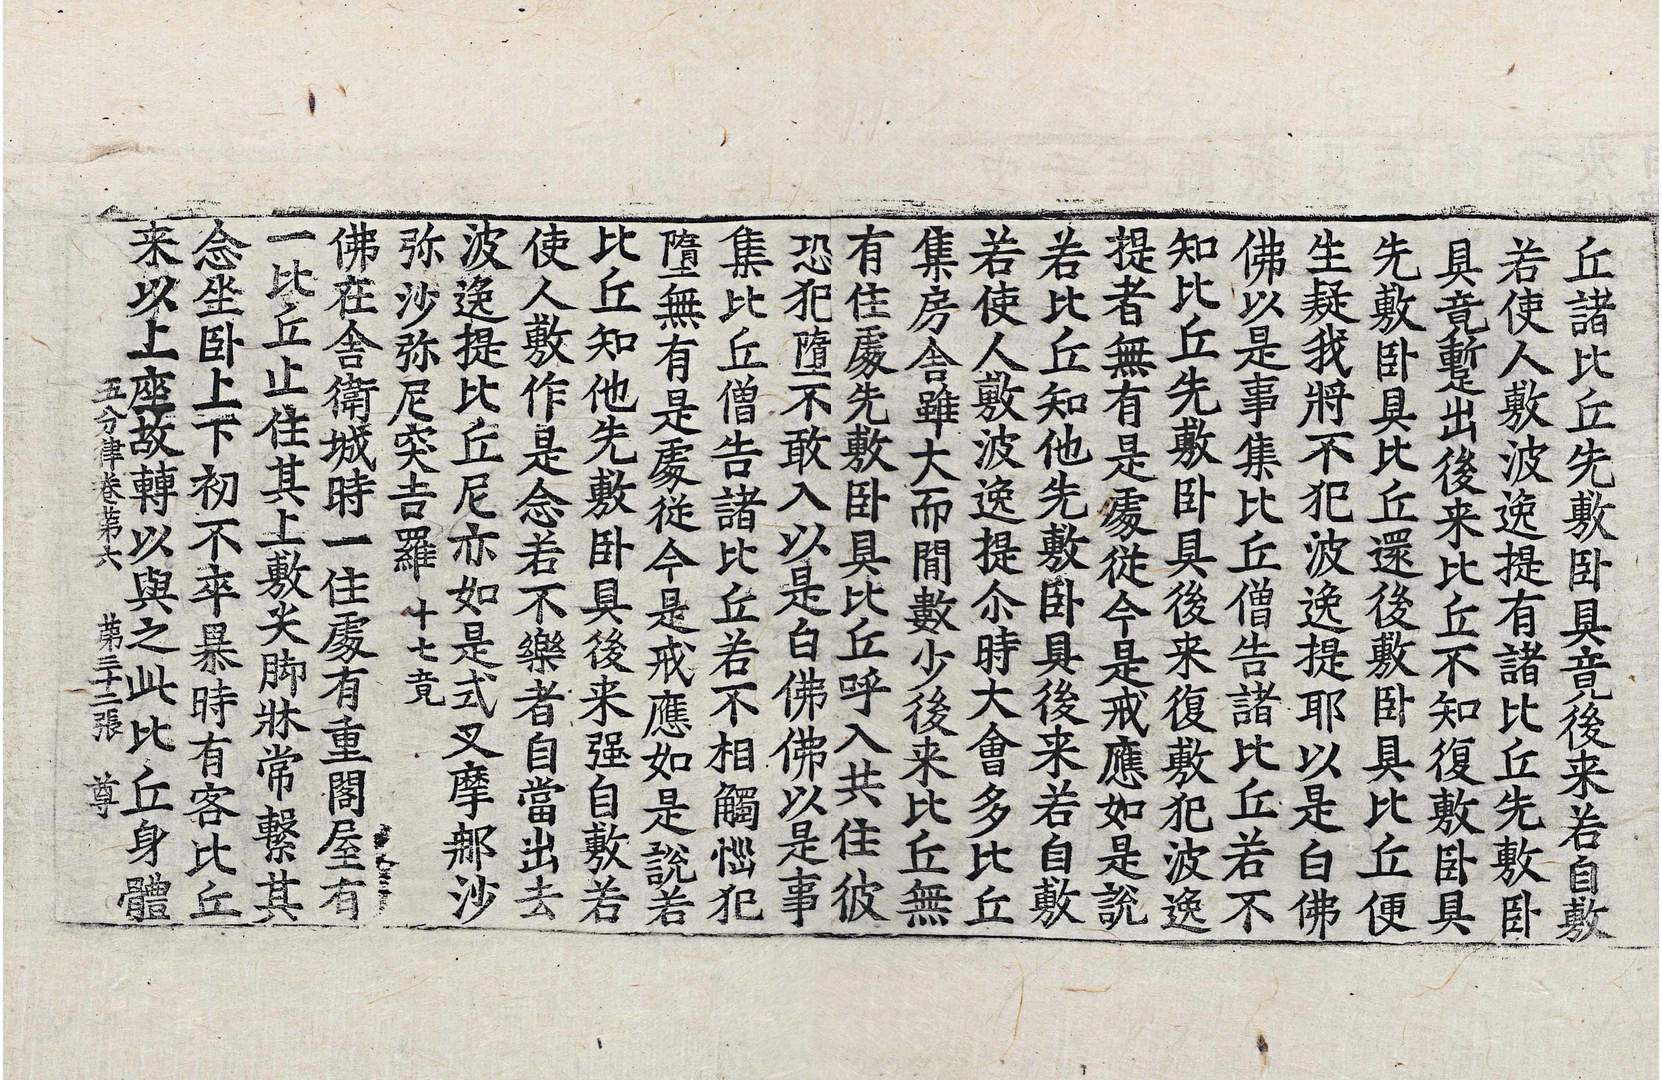 丘諸比丘先敷卧具竟後来若自敷
若使人敷波逸提有諸比丘先敷卧
具竟暫出後来比丘不知復敷卧具
先敷卧具比丘還後敷卧具比丘便
生疑我將不犯波逸提耶以是白佛
佛以是事集比丘僧告諸比丘若不
知比丘先敷卧具後来復敷犯波逸
提者無有是處從今是戒應如是說
若比丘知他先敷卧具後来若自敷
若使人敷波逸提尒時大會多比丘
集房舎雖大而間數少後来比丘無
有住處先敷卧具比丘呼入共住彼
恐犯墮不敢入以是白佛佛以是事
集比丘僧告諸比丘若不相觸惱犯
墮無有是處從今是戒應如是說若
比丘知他先敷卧具後来强自敷若
使人敷作是念若不樂者自當出去
波逸提比丘尼亦如是式叉摩那沙
弥沙弥尼突吉羅 十七竟
佛在舎衛城時一住處有重閣屋有
一比丘止住其上敷尖脚牀常繫其
念坐卧上下初不卒暴時有客比丘
来以上座故轉以與之此比丘身體
五分律卷第六 第三十二張 尊